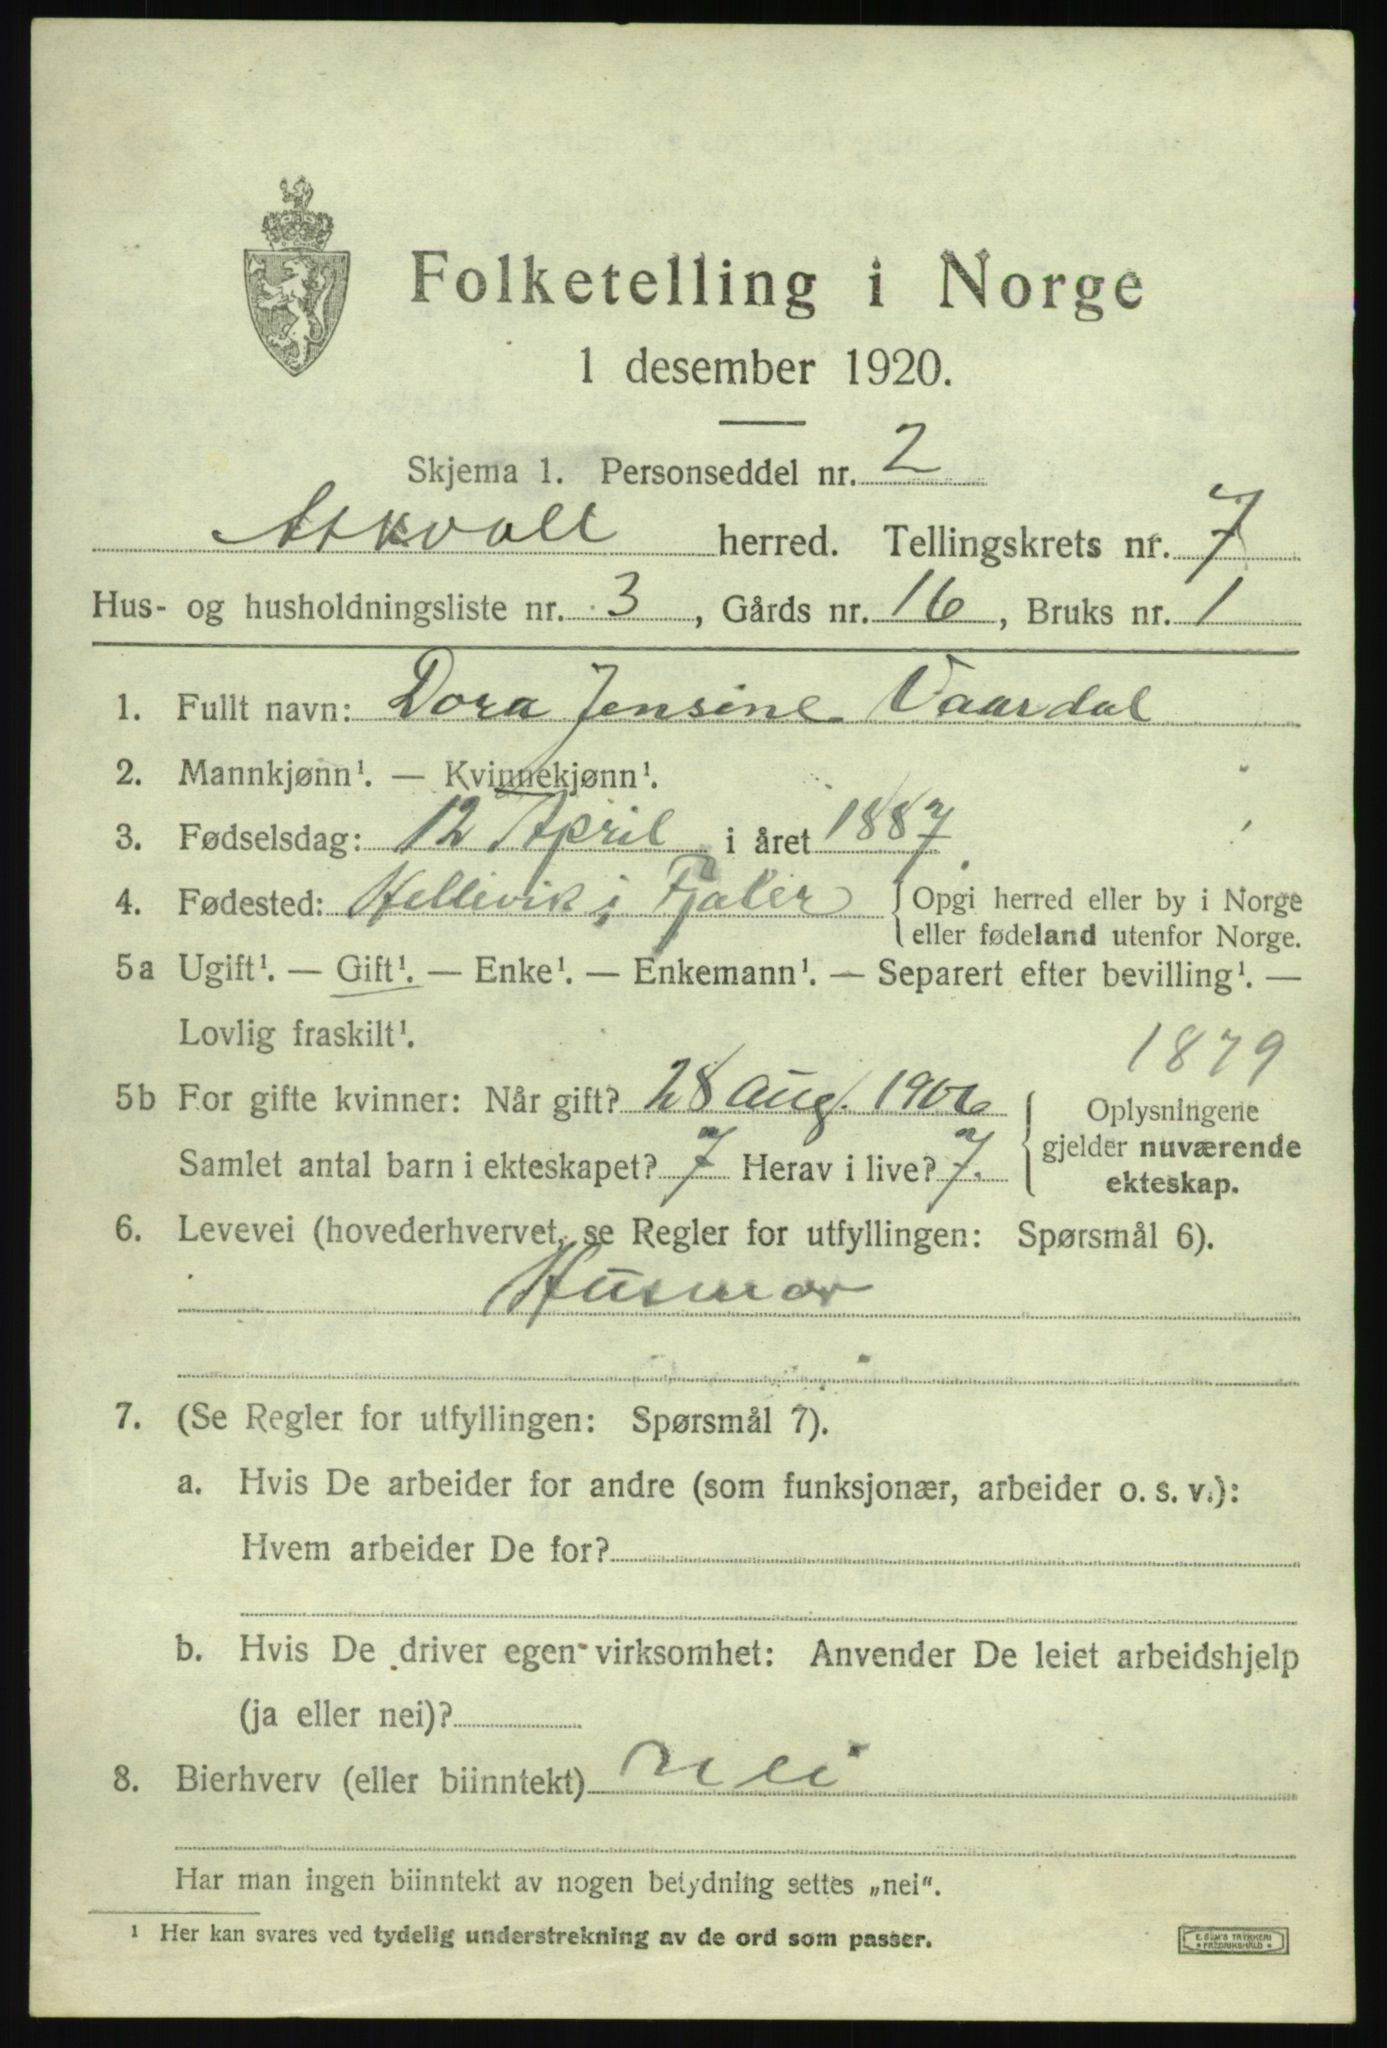 Folketelling i Norge
1 desember 1920.
Skjema 1. Personseddel nr. 2
Askvoll herred. Tellingskrets nr. 7
Hus- og husholdningsliste nr. 3, Gårds nr. 16, Bruks nr. 1
1. Fullt navn: Dora Jensine Vaardal
2. Mannkjønn¹. — Kvinnekjønn¹.
3. Fødselsdag: 12 April i året 1887.
4. Fødested: Hellevik i Fjaler { Opgi herred eller by i Norge
eller fødeland utenfor Norge.
5a Ugift¹. — Gift¹. — Enke¹. — Enkemann¹. — Separert efter bevilling¹. —
Lovlig fraskilt¹.
1879
5b For gifte kvinner: Når gift? 28 Aug. 1906
Samlet antal barn i ekteskapet? 7 Herav i live? 7.
{ Oplysningene
gjelder nuværende
ekteskap.
6. Levevei (hovederhvervet, se Regler for utfyllingen: Spørsmål 6).
Husmor
7. (Se Regler for utfyllingen: Spørsmål 7).
a. Hvis De arbeider for andre (som funksjonær, arbeider o. s. v.):
Hvem arbeider De for?
b. Hvis De driver egen virksomhet: Anvender De leiet arbeidshjelp
(ja eller nei)?
8. Bierhverv (eller biinntekt) Nei
Har man ingen biinntekt av nogen betydning settes „nei“.
¹ Her kan svares ved tydelig understrekning av de ord som passer.
E. SEM'S TRYKKERI
FREDRIKSHALD